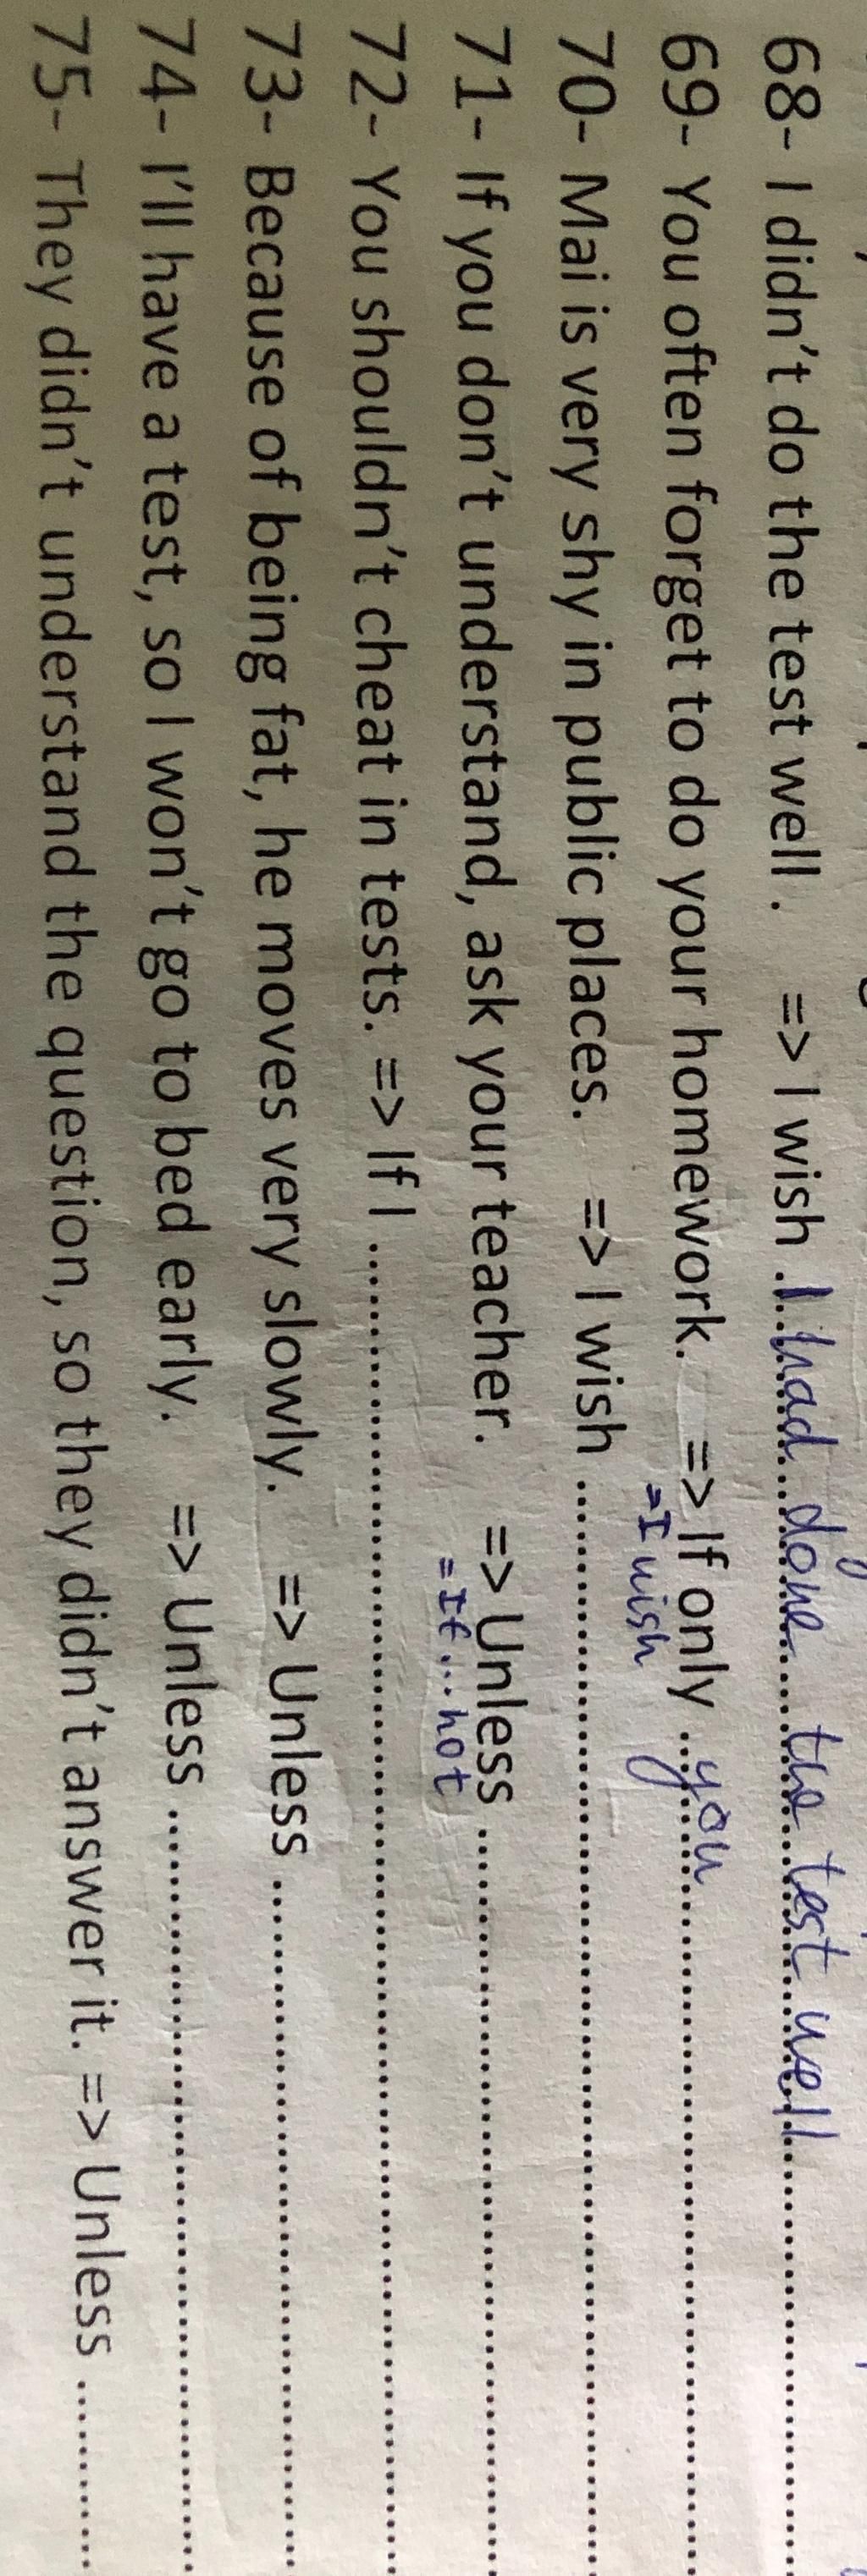 68- I didn't do the test well . => I wish .I had done the test well
69- You often forget to do your homework. => If only you
=I wish
70- Mai is very shy in public places. => I wish ..............
71- If you don't understand, ask your teacher. => Unless ..............
=If...not
72- You shouldn't cheat in tests. => If I ..............
73- Because of being fat, he moves very slowly. => Unless ..............
74- I'll have a test, so I won't go to bed early. => Unless ..............
75- They didn't understand the question, so they didn't answer it. => Unless ..........